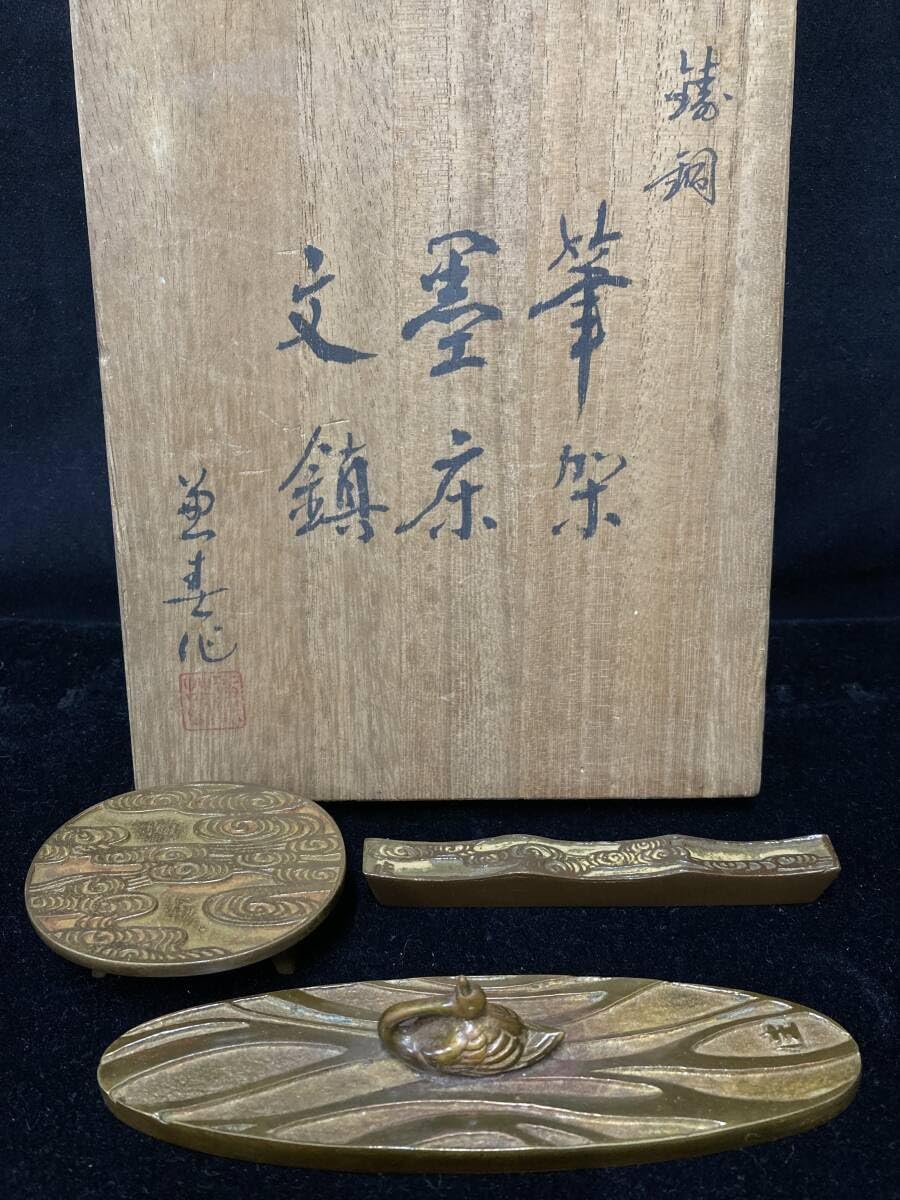 鋳銅
筆架
墨床
文鎮
兼春作